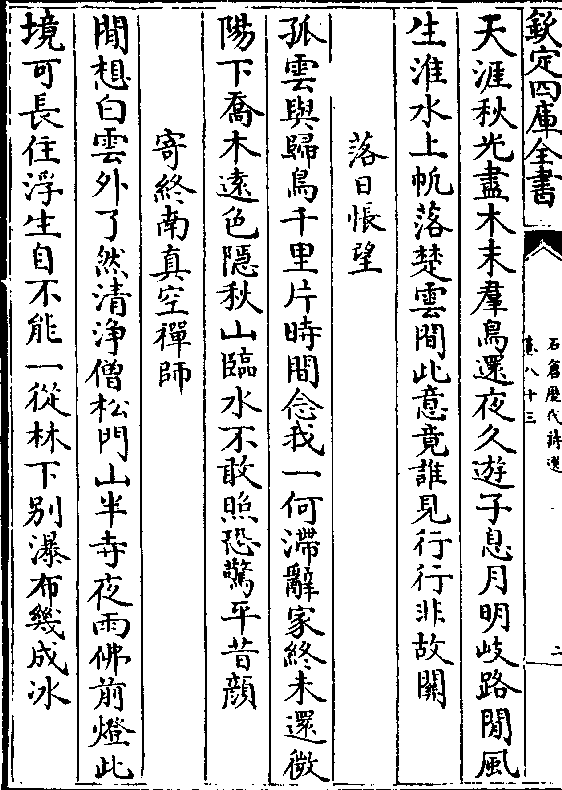 欽定四庫全書
石倉歷代詩選
卷八十三
二
天涯秋光盡木末羣鳥還夜久遊子息月明岐路閒風
生淮水上帆落楚雲間此意竟誰見行行非故關
落日悵望
孤雲與歸鳥千里片時間念我一何滯辭家終未還微
陽下喬木遠色隱秋山臨水不敢照恐驚平昔顏
寄終南真空禪師
閒想白雲外了然清淨僧松門山半寺夜雨佛前燈此
境可長住浮生自不能一從林下別瀑布幾成冰